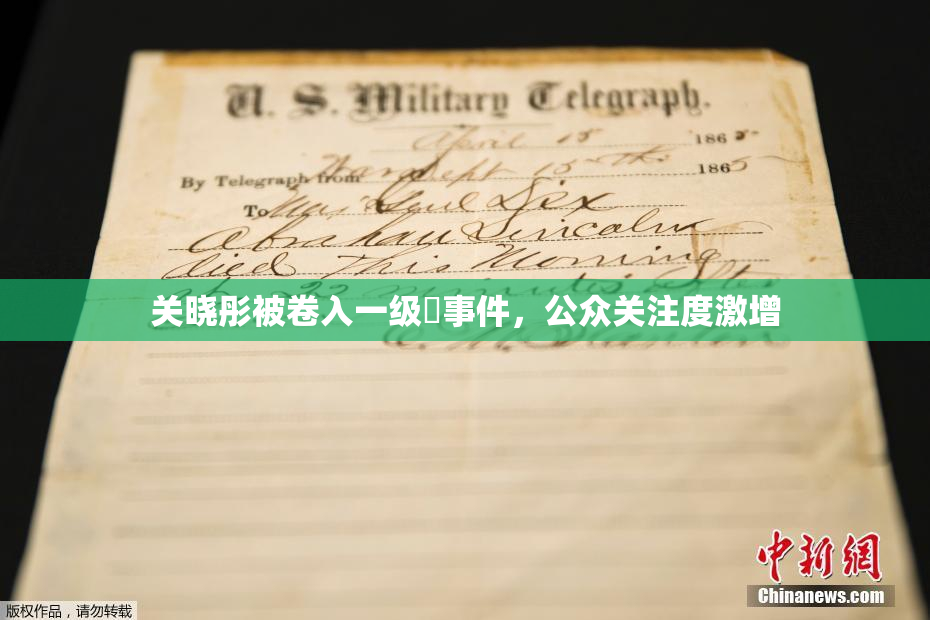 U. S. Military Telegraph.
April 15 1865
By Telegraph from War Dept 15th 1865
To Maj Genl Dix
Abraham Lincoln
died This Morning
at 22 minutes after
关晓彤被卷入一级事件，公众关注度激增
E. M. Stanton
中新网
Chinanews.com
版权作品，请勿转载